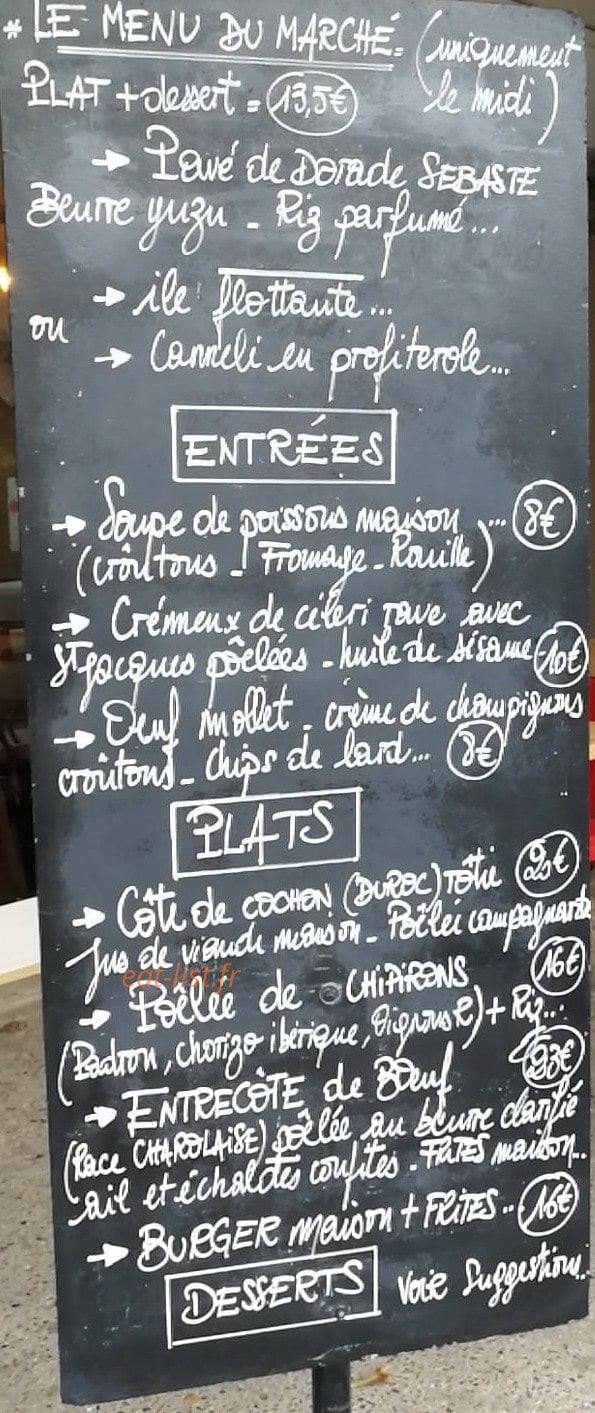 * LE MENU DU MARCHÉ = (uniquement
PLAT + dessert = 13,5€ le midi)
→ Pavé de Dorade SEBASTE
Beurre yuzu - Riz parfumé...
→ ile flottante...
ou
→ Cannelé en profiterole...
ENTRÉES
→ Soupe de poissons maison ... 8€
(croûtons - Fromage - Rouille)
→ Crémeux de céleri rave avec
St Jacques poêlées - huile de sésame - 10€
→ Oeuf mollet - crème de champignons
croûtons - chips de lard... 8€
PLATS
→ Côte de COCHON (DUROC) rôtie
Jus de viande maison - Poêlée campagnarde
eat-list.fr
→ Poêlée de CHIPIRONS 16€
(Padron, chorizo ibérique, Oignons R) + Riz...
→ ENTRECÔTE de Bœuf 23€
(Race CHAROLAISE) poêlée au beurre clarifié
ail et échalotes confites - FRITES maison..
→ BURGER maison + FRITES .. 16€
DESSERTS voir Suggestions..